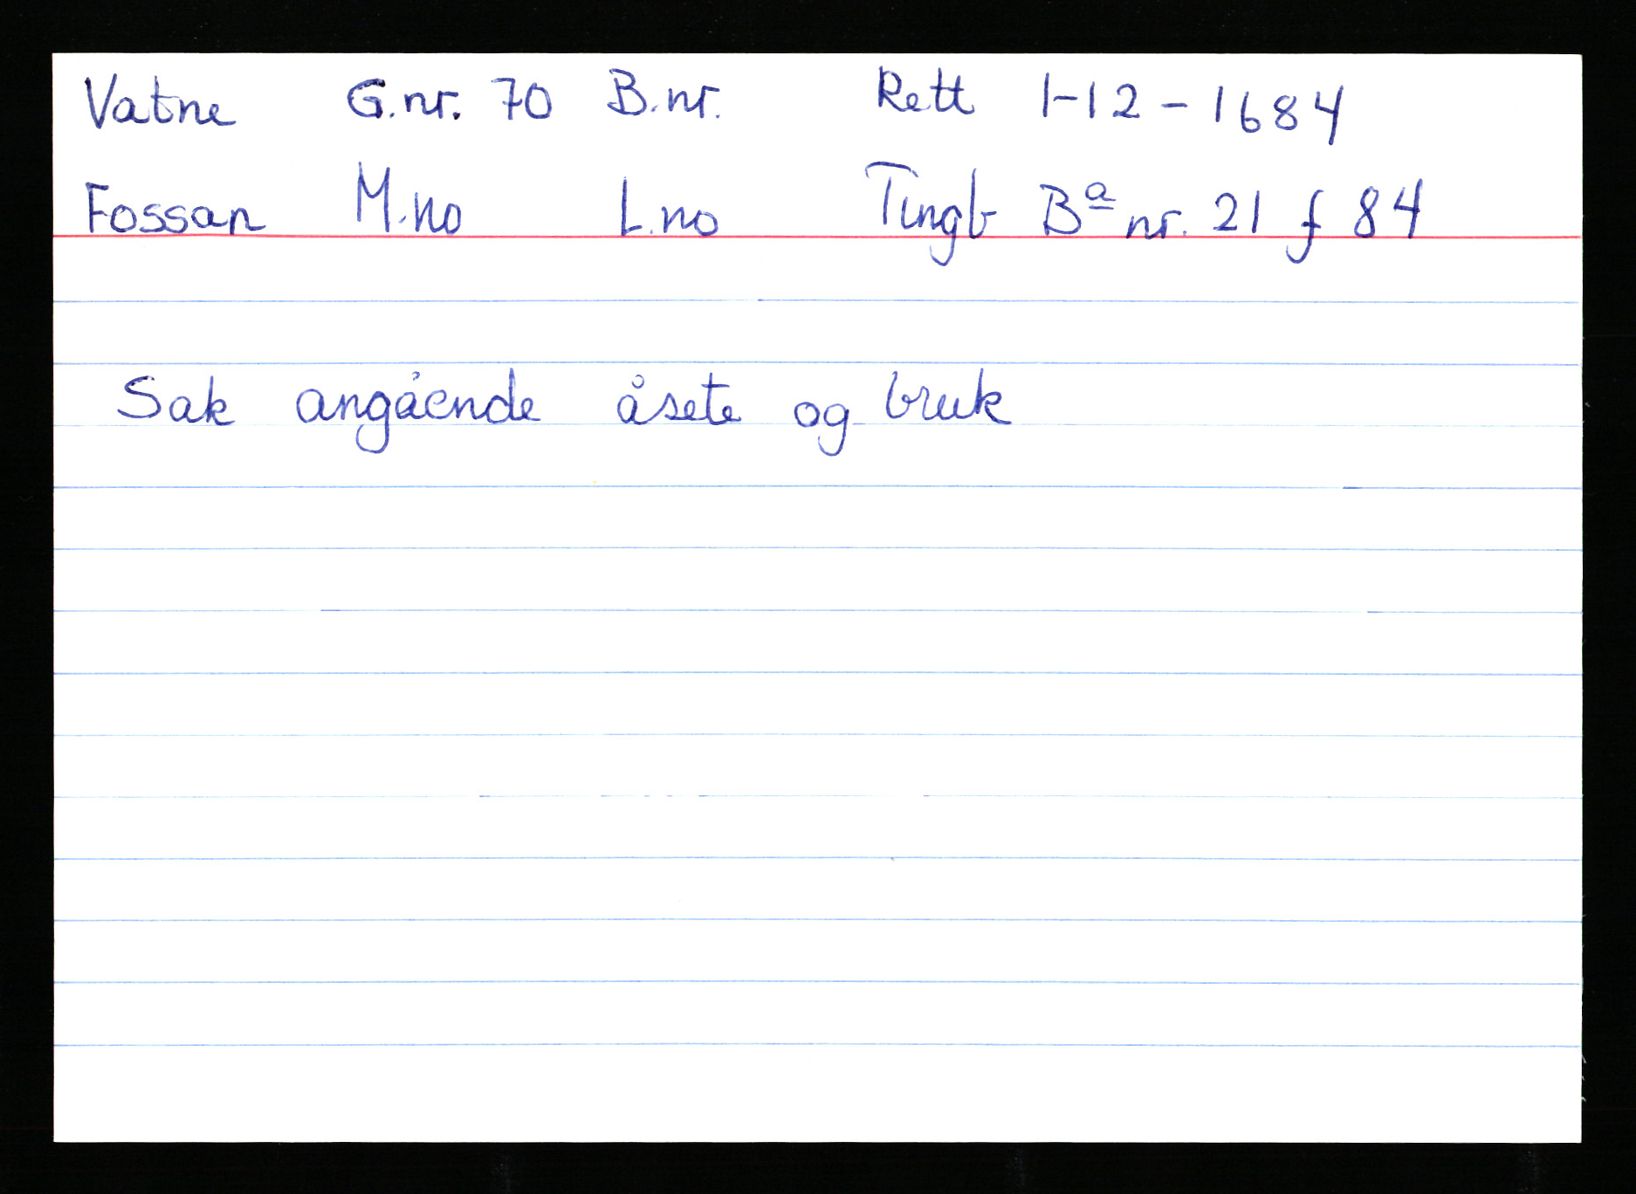 Vatne G.nr. 70 B.nr. Rett 1-12-1684
Fossan M.no L.no Tingb Bª nr. 21 f 84
Sak angående åsete og bruk